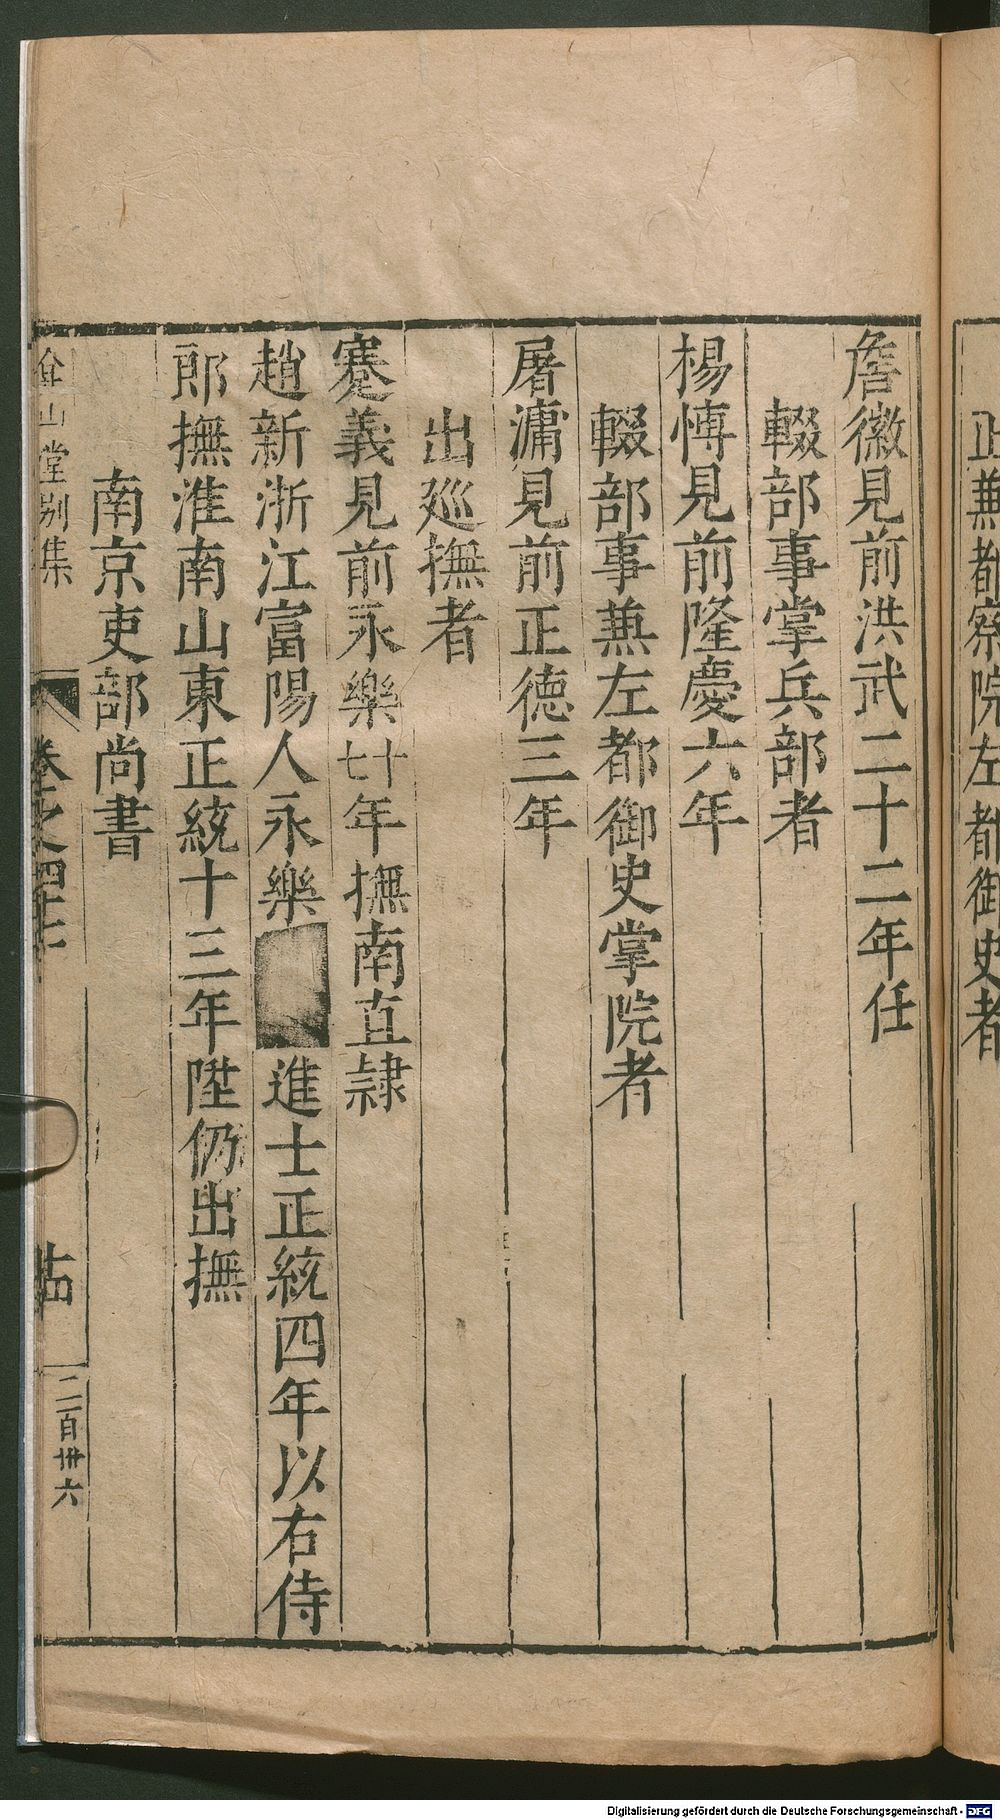 正兼都察院左都御史者
詹徽見前洪武二十二年任
輟部事掌兵部者
楊愽見前隆慶六年
輟部事兼左都御史掌院者
屠滽見前正德三年
出廵撫者
蹇義見前永樂十七年撫南直隷
趙新浙江富陽人永樂 進士正統四年以右侍
郎撫淮南山東正統十三年陞仍出撫
南京吏部尚書
弇山堂别集
卷之四十七
二百卅六
Digitalisierung gefördert durch die Deutsche Forschungsgemeinschaft - DFG